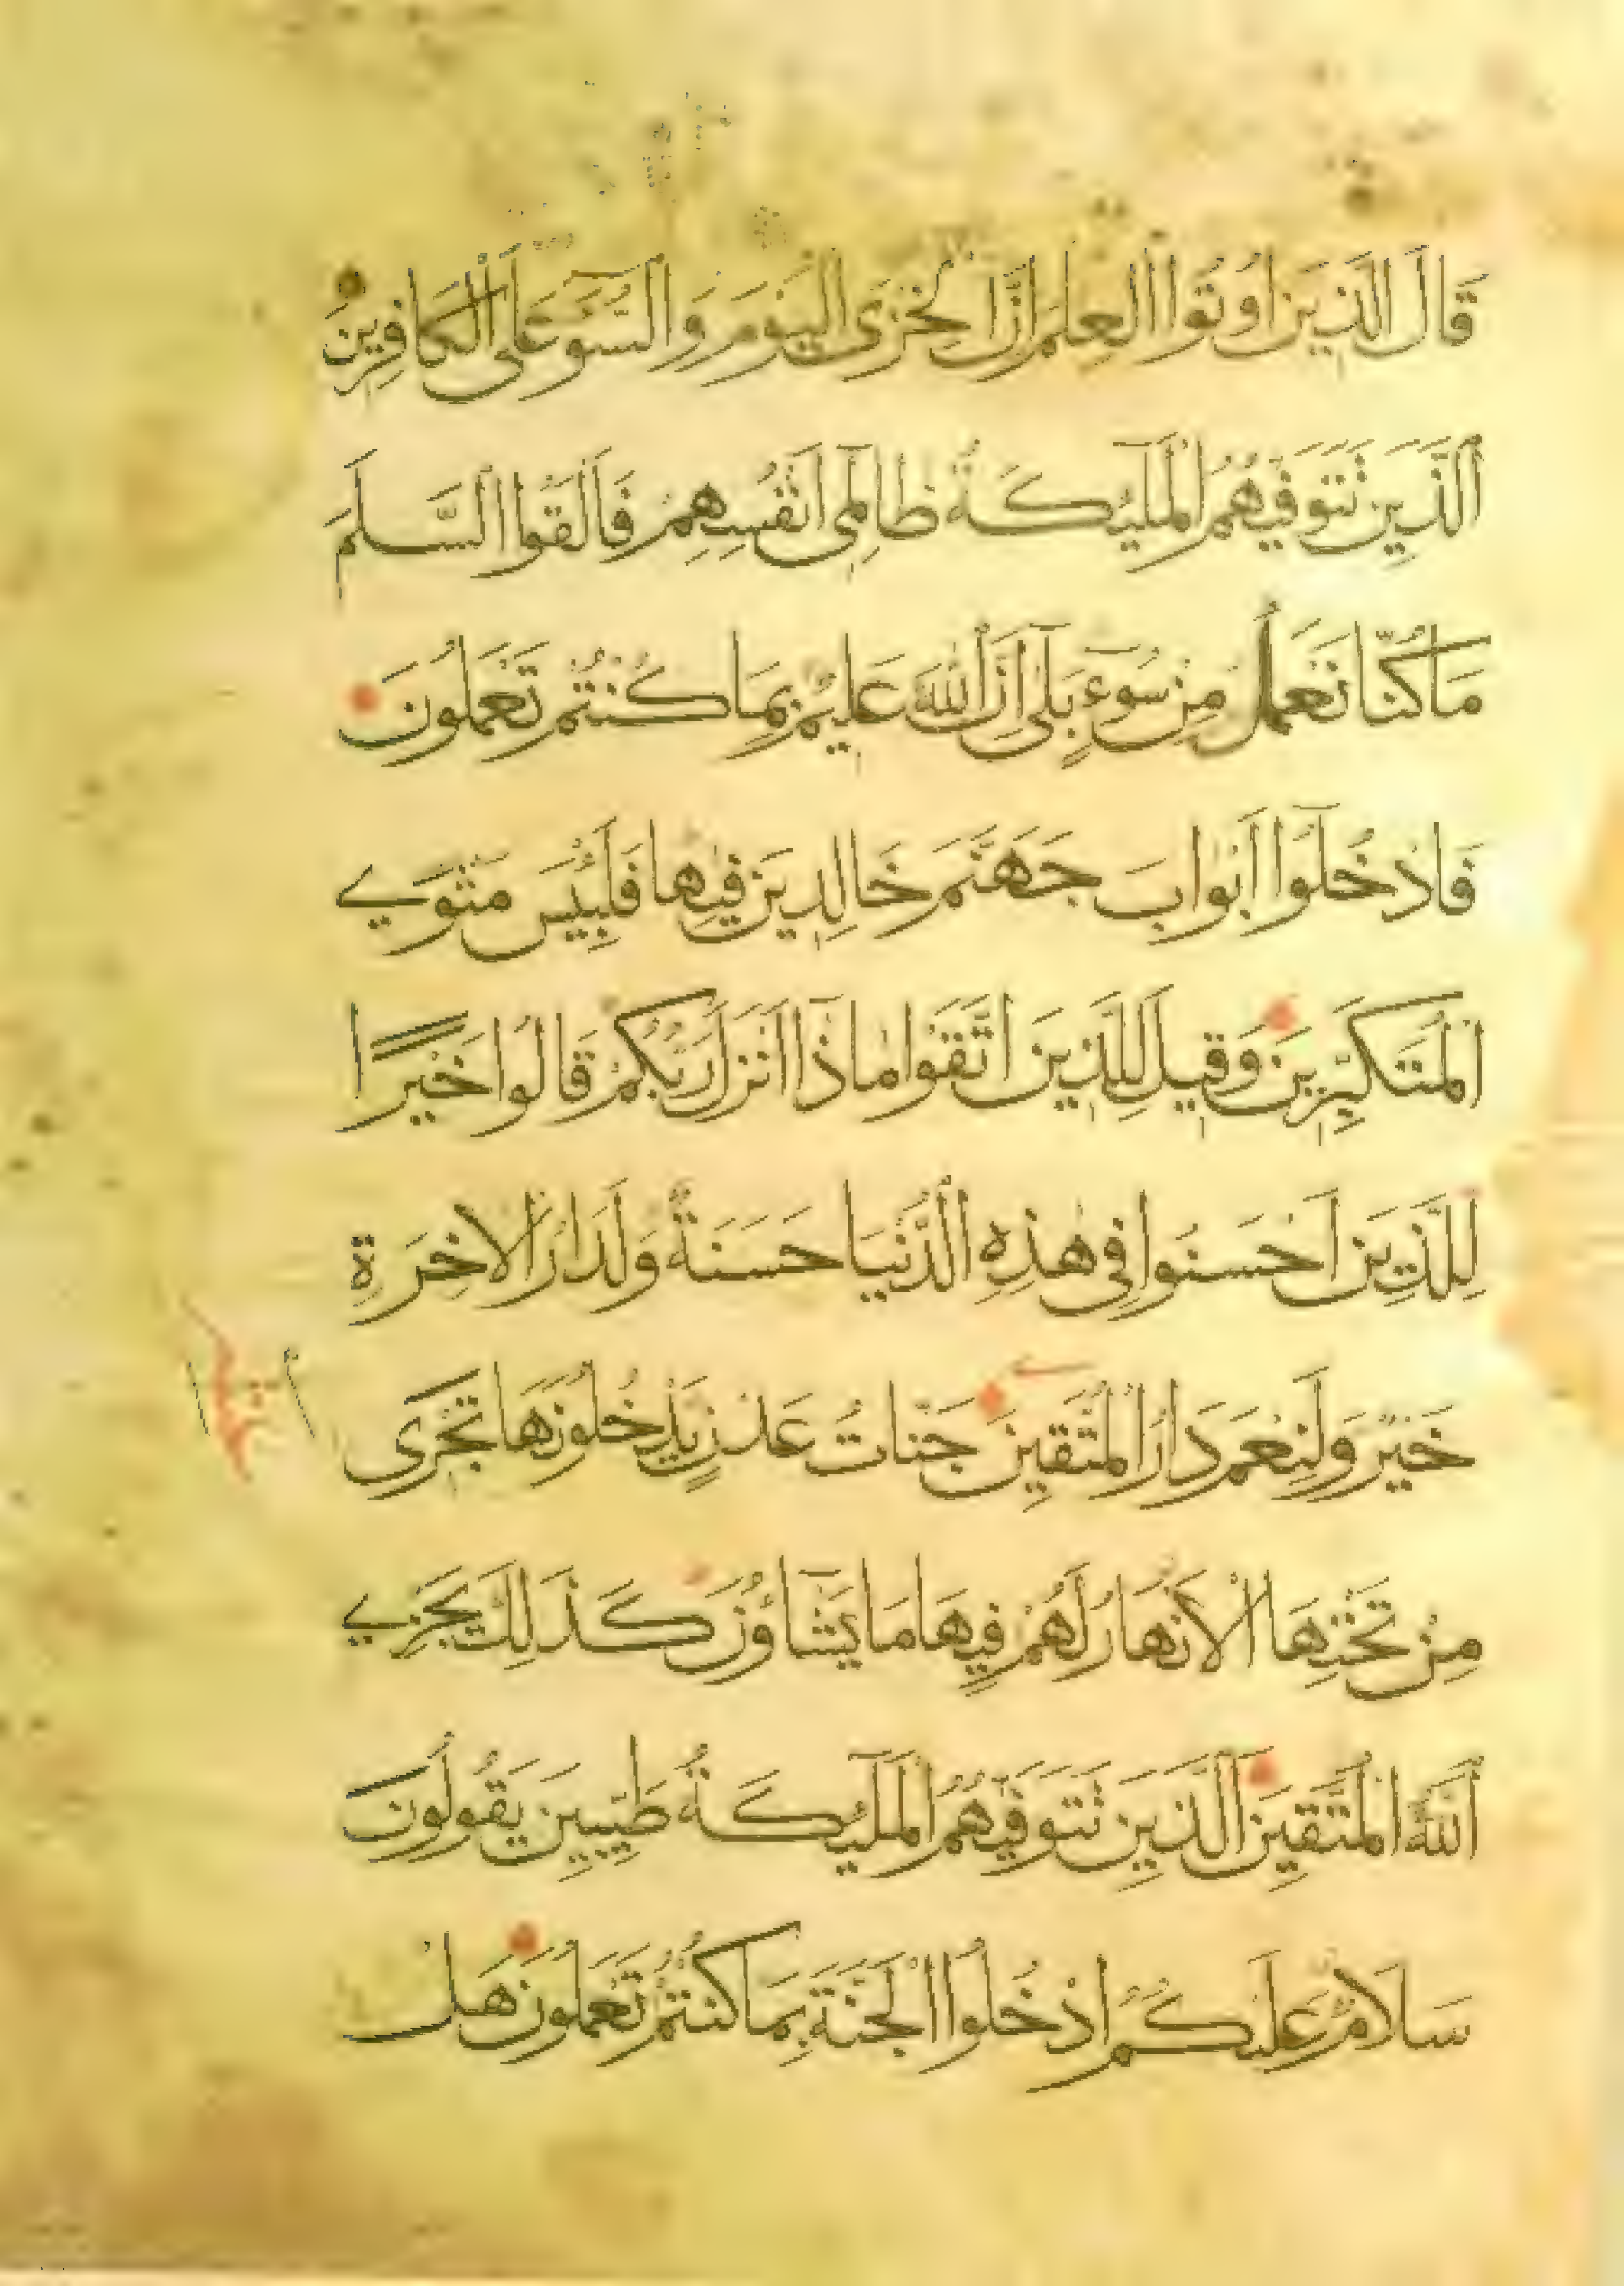 قَالَ الَّذِينَ اُوتُوا الْعِلْمَ اِنَّ الْخِزْىَ الْيَوْمَ وَالسُّوٓءَ عَلَى الْكَافِرِينَ
اَلَّذِينَ تَتَوَفّٰيهُمُ الْمَلٰٓئِكَةُ ظَالِمِٓى اَنْفُسِهِمْ فَاَلْقَوُا السَّلَمَ
مَا كُنَّا نَعْمَلُ مِنْ سُوٓءٍ بَلٰٓى اِنَّ اللّٰهَ عَلِيمٌ بِمَا كُنْتُمْ تَعْمَلُونَ
فَادْخُلُوٓا اَبْوَابَ جَهَنَّمَ خَالِدِينَ فِيهَا فَلَبِئْسَ مَثْوَى
الْمُتَكَبِّرِينَ وَقِيلَ لِلَّذِينَ اتَّقَوْا مَاذَٓا اَنْزَلَ رَبُّكُمْ قَالُوا خَيْرًا
لِلَّذِينَ اَحْسَنُوا فِى هٰذِهِ الدُّنْيَا حَسَنَةٌ وَلَدَارُ الْاٰخِرَةِ
خَيْرٌ وَلَنِعْمَ دَارُ الْمُتَّقِينَ جَنَّاتُ عَدْنٍ يَدْخُلُونَهَا تَجْرِى
مِنْ تَحْتِهَا الْاَنْهَارُ لَهُمْ فِيهَا مَا يَشَٓاؤُنَ كَذٰلِكَ يَجْزِى
اللّٰهُ الْمُتَّقِينَ اَلَّذِينَ تَتَوَفّٰيهُمُ الْمَلٰٓئِكَةُ طَيِّبِينَ يَقُولُونَ
سَلَامٌ عَلَيْكُمُ ادْخُلُوا الْجَنَّةَ بِمَا كُنْتُمْ تَعْمَلُونَ هَلْ